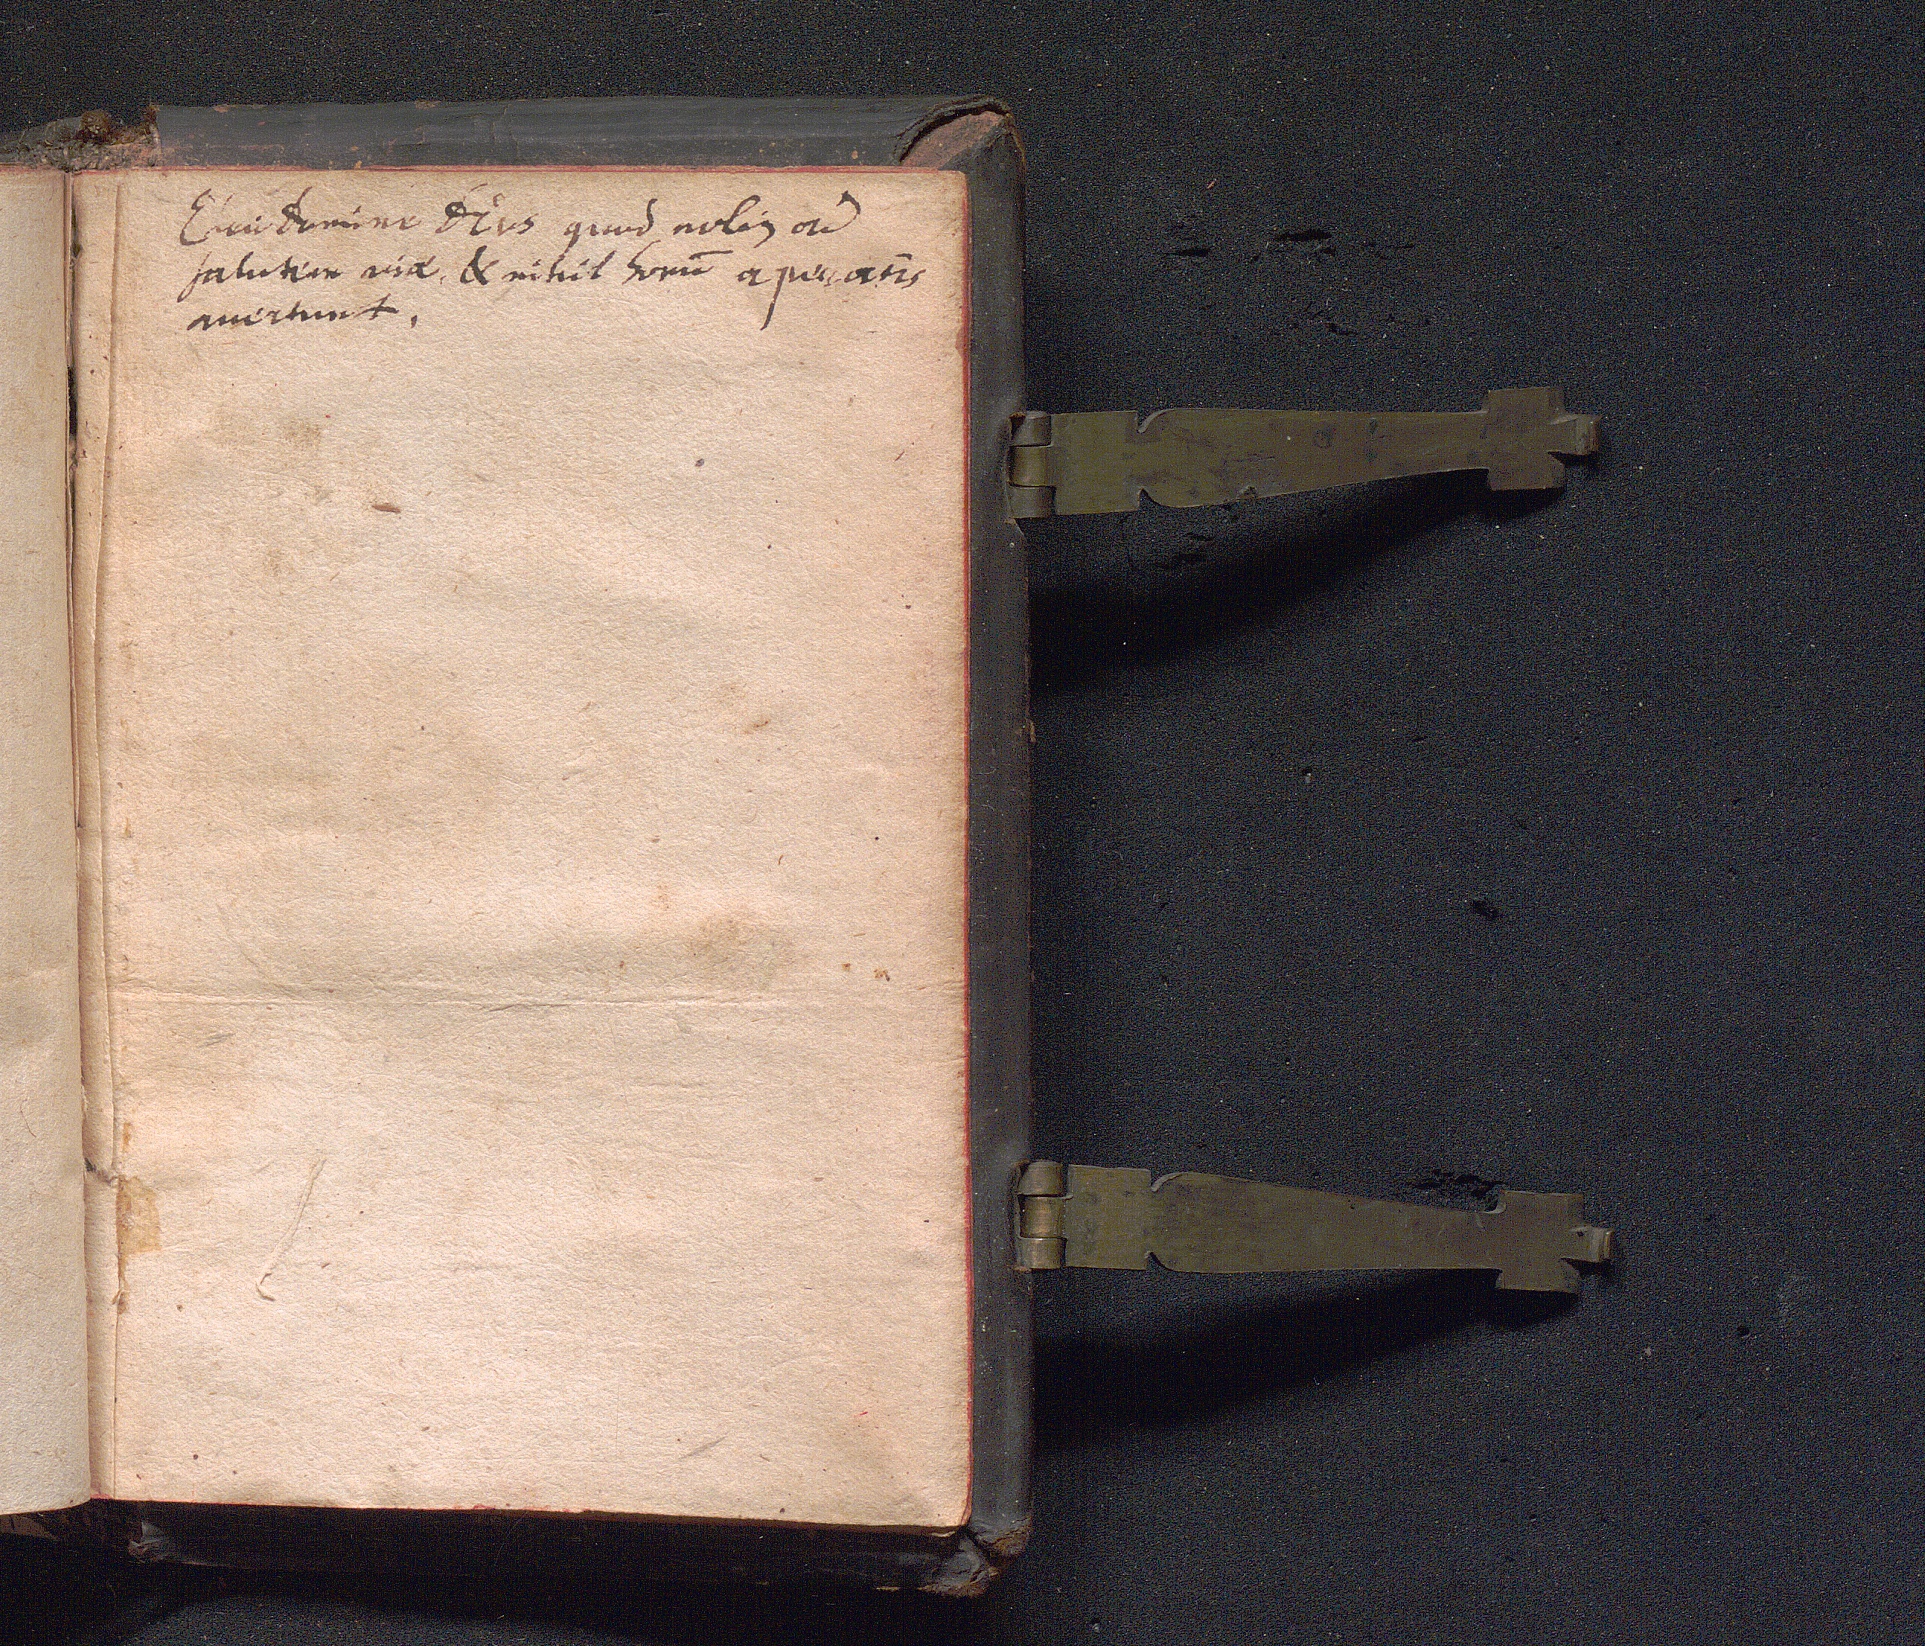 domine Deus quod nobis ad
salutem & nihil horū a peccatis
auertunt.